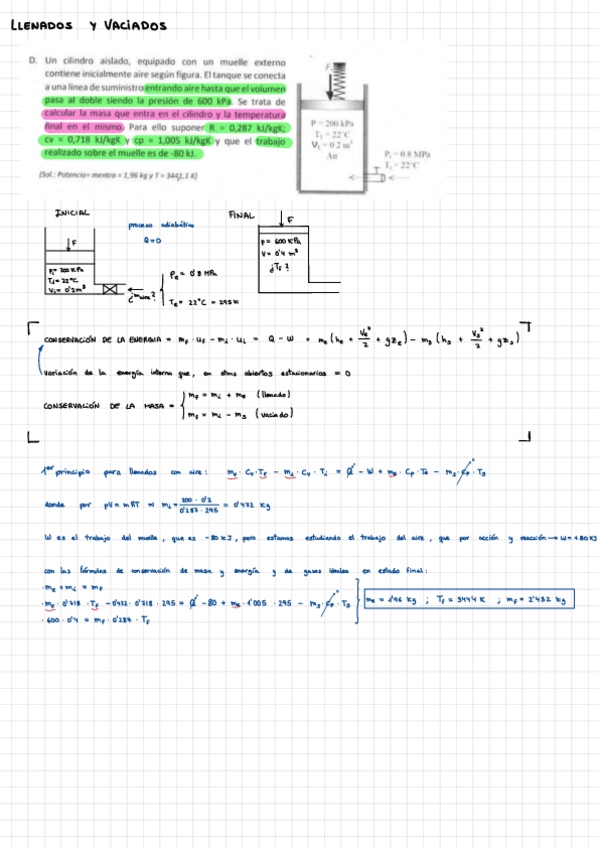 LLENADOS Y VACIADOS
D. Un cilindro aislado, equipado con un muelle externo
contiene inicialmente aire según figura. El tanque se conecta
a una línea de suministro entrando aire hasta que el volumen
pasa al doble siendo la presión de 600 kPa. Se trata de
calcular la masa que entra en el cilindro y la temperatura
final en el mismo. Para ello suponer R = 0,287 kJ/kgK;
cv = 0,718 kJ/kgK y cp = 1,005 kJ/kgK y que el trabajo
realizado sobre el muelle es de -80 kJ.
(Sol.: Potencia= mentra = 1,96 kg y T = 344,1 K)
P = 200 kPa
T₁ = 22°C
V₁ = 0.2 m³
Air
Pₑ = 0.8 MPa
Tₑ = 22°C
INICIAL
proceso adiabático
Q=0
F
P₁= 200 KPa
T₁= 22°C
V₁= 0'2m³
¿mₐᵢᵣₑ?
Pe = 0'8 MPa
Te = 22°C = 295K
FINAL
F
P = 600 KPa
V = 0'4 m³
¿Tf?
CONSERVACIÓN DE LA ENERGIA = mf · uf - mi · ui = Q - W + me (he + Ve²/2 + gze) - ms (hs + Vs²/2 + gzs)
Variación de la energía interna que, en stmas abiertos estacionarios = 0
CONSERVACIÓN DE LA MASA =
mf = mi + me (llenado)
mf = mi - ms (vaciado)
1er principio para llenados con aire: mf · Cv · Tf - mi · Cv · Ti = Q - W + me · Cp · Te - ms · Cp · Ts
donde por pV = mRT ⇒ mi = 200 · 0'2 / 0'287 · 295 = 0'472 Kg
W es el trabajo del muelle, que es -80 KJ, pero estamos estudiando el trabajo del aire, que por acción y reacción → W = +80 KJ
con las fórmulas de conservación de masa y energía y de gases ideales en estado final:
· me + mi = mf
· mf · 0'718 · Tf - 0'472 · 0'718 · 295 = Q - 80 + me · 1'005 · 295 - ms · Cp · Ts
· 600 · 0'4 = mf · 0'287 · Tf
me = 1'96 Kg ; Tf = 344'4 K ; mf = 2'432 Kg